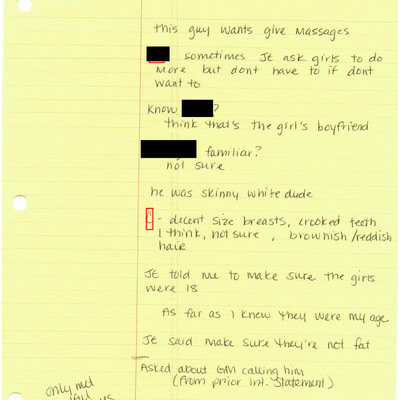 this guy wants give massages
sometimes JE ask girls to do
more but dont have to if dont
want to
know ?
think that's the girl's boyfriend
familiar?
not sure
he was skinny white dude
- decent size breasts, crooked teeth
I think, not sure, brownish/reddish
hair
JE told me to make sure the girls
were 18
As far as I knew they were my age
JE said make sure they're not fat
Asked about GM calling him
(from prior int. statement)
only met